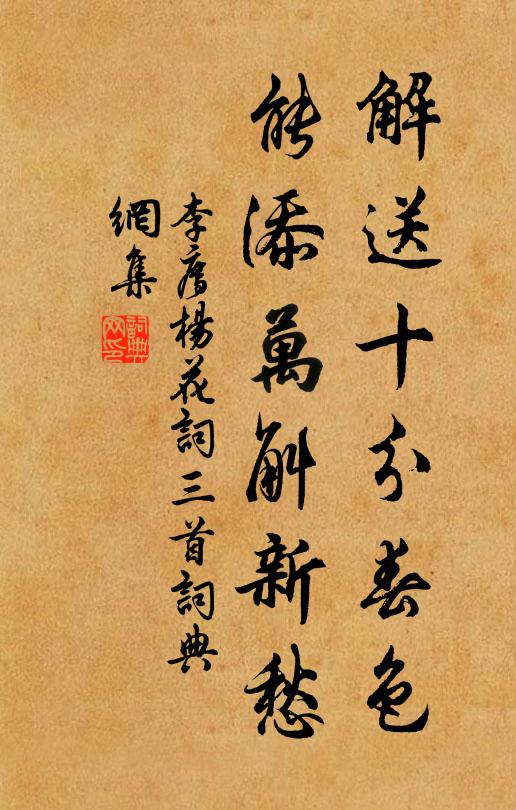 解送十分春色
能添萬斛新愁
李廌楊花詞三首詞典
網集
詞典
网印